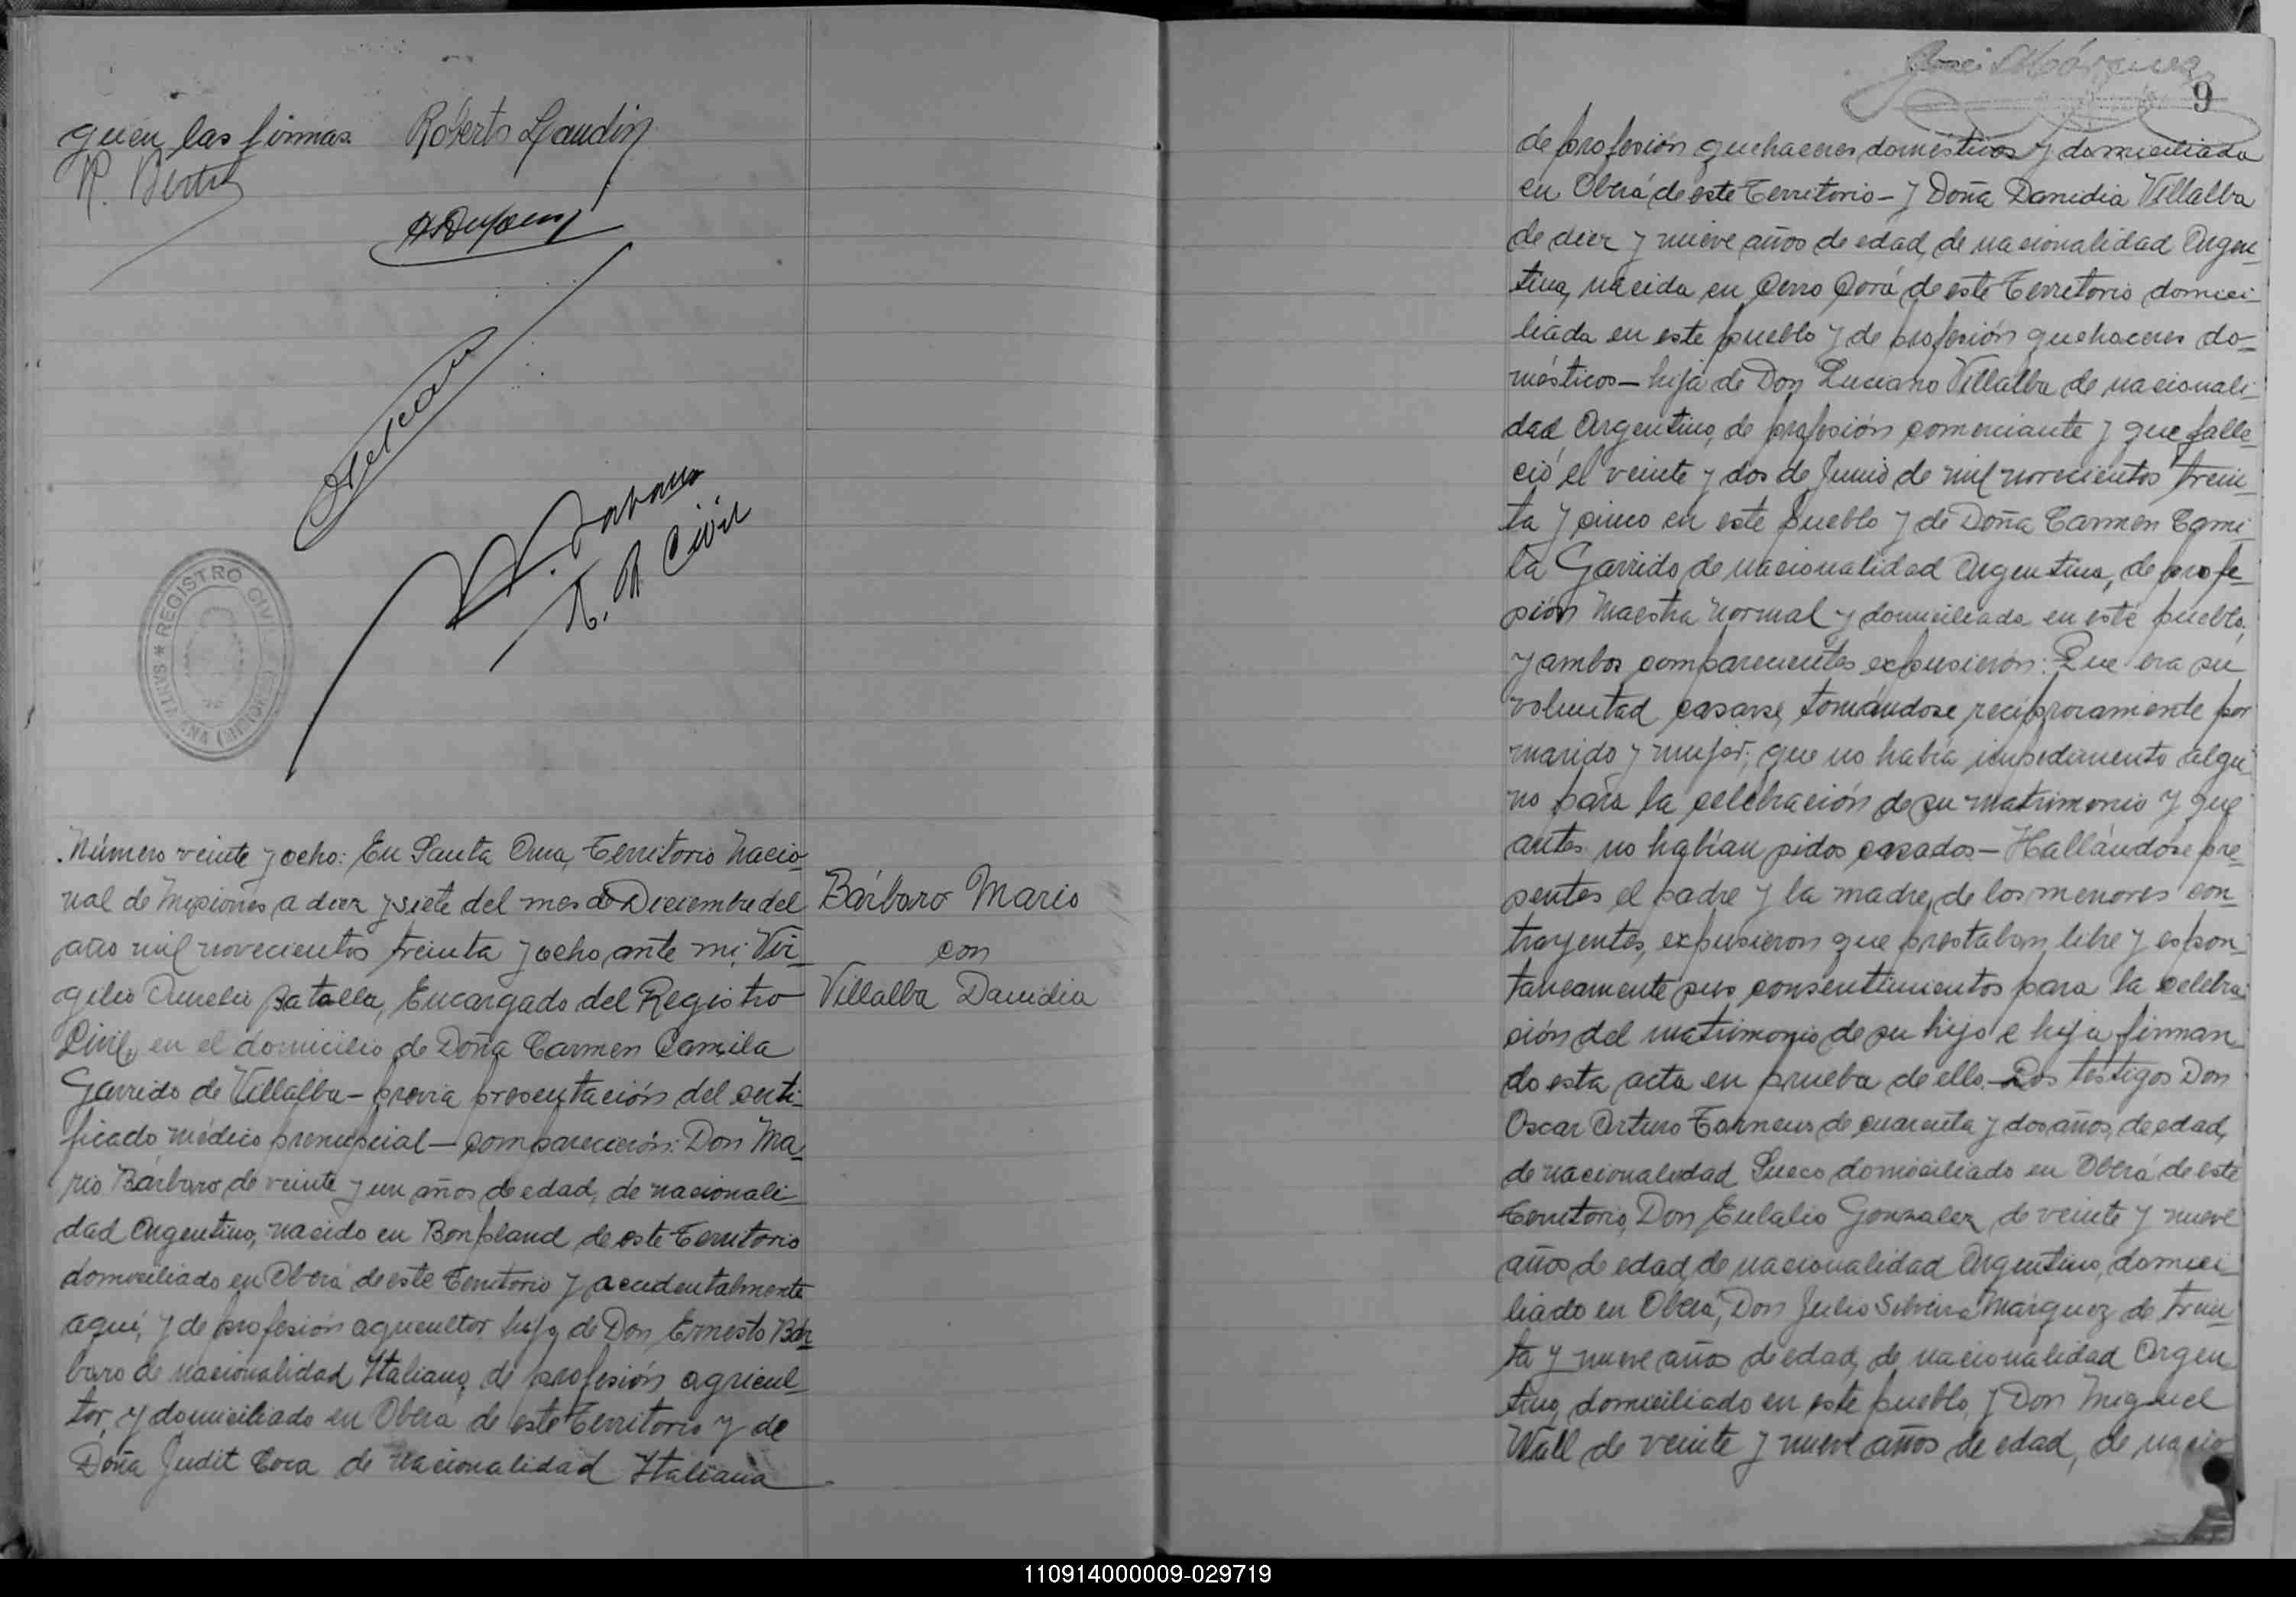 guen las firmas. Roberto Landin
R.
REGISTRO CIVIL
SANTA ANA (MISIONES)
R. Civil
Número veinte y ocho: En Santa Ana, Territorio Nacio-
nal de Misiones a diez y siete del mes de Diciembre del
año mil novecientos treinta y ocho, ante mi, Vir-
gilio Aurelio Batalla, Encargado del Registro
Civil, en el domicilio de Doña Carmen Camila
Garrido de Villalba – previa presentación del certi-
ficado médico prenupcial – comparecieron: Don Ma-
rio Bárbaro de veinte y un años de edad, de nacionali-
dad Argentino, nacido en Bonpland de este Territorio
domiciliado en Oberá de este Territorio y accidentalmente
aquí, y de profesión agricultor hijo de Don Ernesto Bár-
baro de nacionalidad Italiano, de profesión agricul-
tor, y domiciliado en Oberá de este Territorio y de
Doña Judit Coca de nacionalidad Italiana
Bárbaro Mario
con
Villalba Danidia
9
de profesión quehaceres domésticos y domiciliada
en Oberá de este Territorio – y Doña Danidia Villalba
de diez y nueve años de edad, de nacionalidad Argen-
tina, nacida en Cerro Corá de este Territorio domici-
liada en este pueblo y de profesión quehaceres do-
mésticos – hija de Don Luciano Villalba de nacionali-
dad Argentino, de profesión comerciante y que falle-
ció el veinte y dos de Junio de mil novecientos trein-
ta y cinco en este pueblo y de Doña Carmen Cami-
la Garrido de nacionalidad Argentina, de profe-
sión Maestra Normal y domiciliada en este pueblo,
y ambos comparecientes expusieron: Que era su
voluntad casarse, tomándose recíprocamente por
marido y mujer; que no había impedimento algu-
no para la celebración de su matrimonio y que
antes no habían sidos casados – Hallándose pre-
sentes el padre y la madre, de los menores con-
trayentes, expusieron que prestaban libre y espon-
taneamente sus consentimientos para la celebra-
ción del matrimonio de su hijo e hija, firman-
do esta acta en prueba de ello. – Los testigos Don
Oscar Arturo de cuarenta y dos años, de edad,
de nacionalidad Sueco domiciliado en Oberá de este
Territorio, Don Eulalio Gonzalez, de veinte y nueve
años de edad, de nacionalidad Argentino, domici-
liado en Oberá, Don Julio Silveira Márquez de trein-
ta y nueve años de edad, de nacionalidad Argen-
tino, domiciliado en este pueblo, y Don Miguel
Wall de veinte y nueve años de edad, de nacio
110914000009-029719